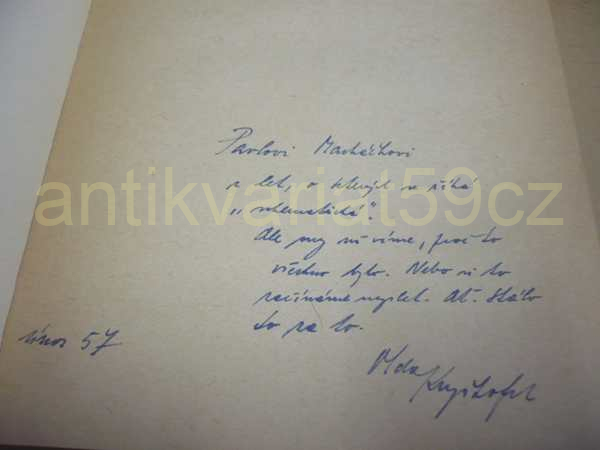 Pavlovi Macháčkovi
z let, o kterých se říká
„schematická“.
Ale my už víme, proč to
všechno bylo. Nebo si to
začínáme myslet. Ať. Stálo
to za to.
únor 57
Olda Kryštofek
antikvariat59cz